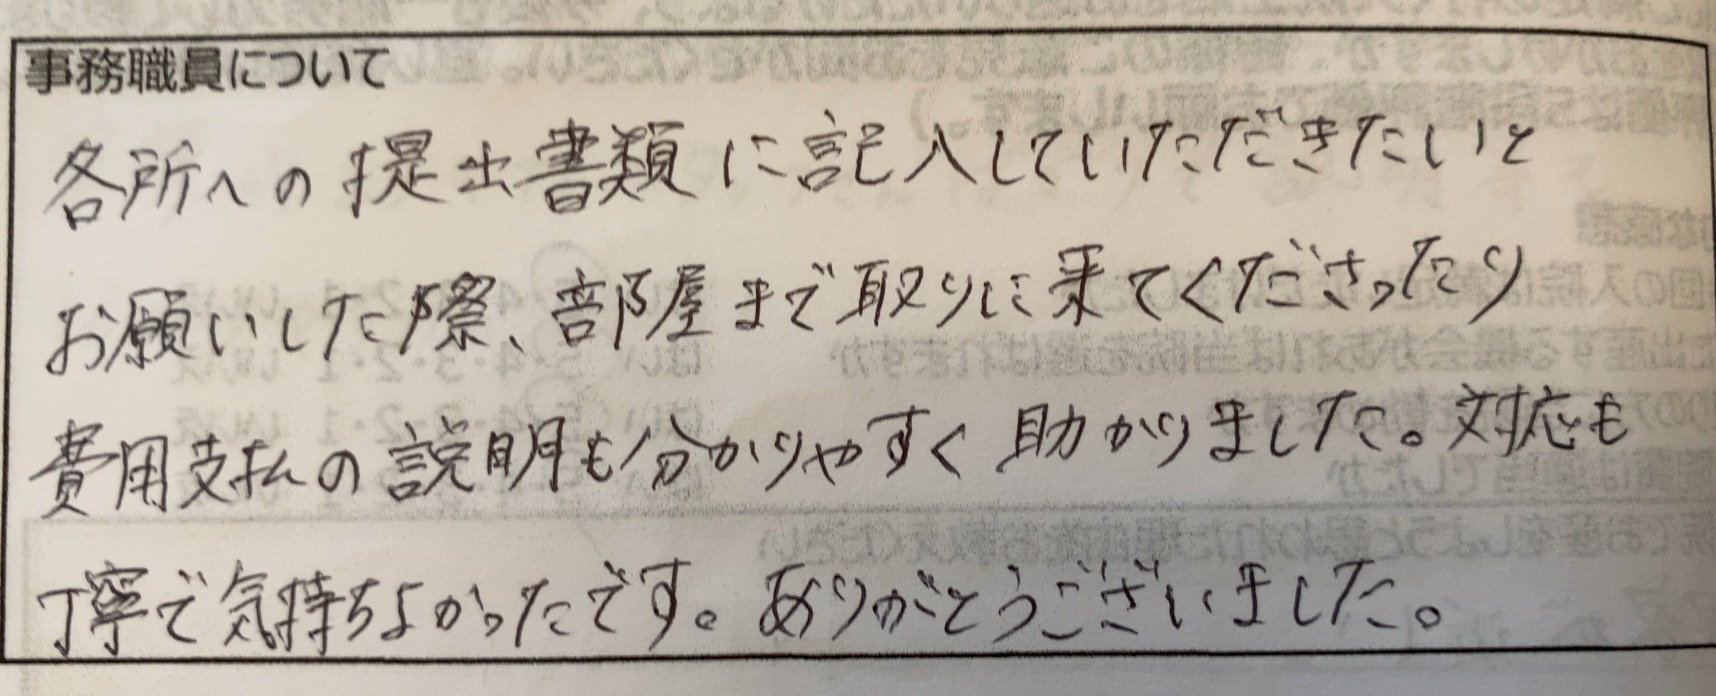 事務職員について
各所への提出書類に記入していただきたいと
お願いした際、部屋まで取りに来てくださったり
費用支払の説明も分かりやすく助かりました。対応も
丁寧で気持ちよかったです。ありがとうございました。